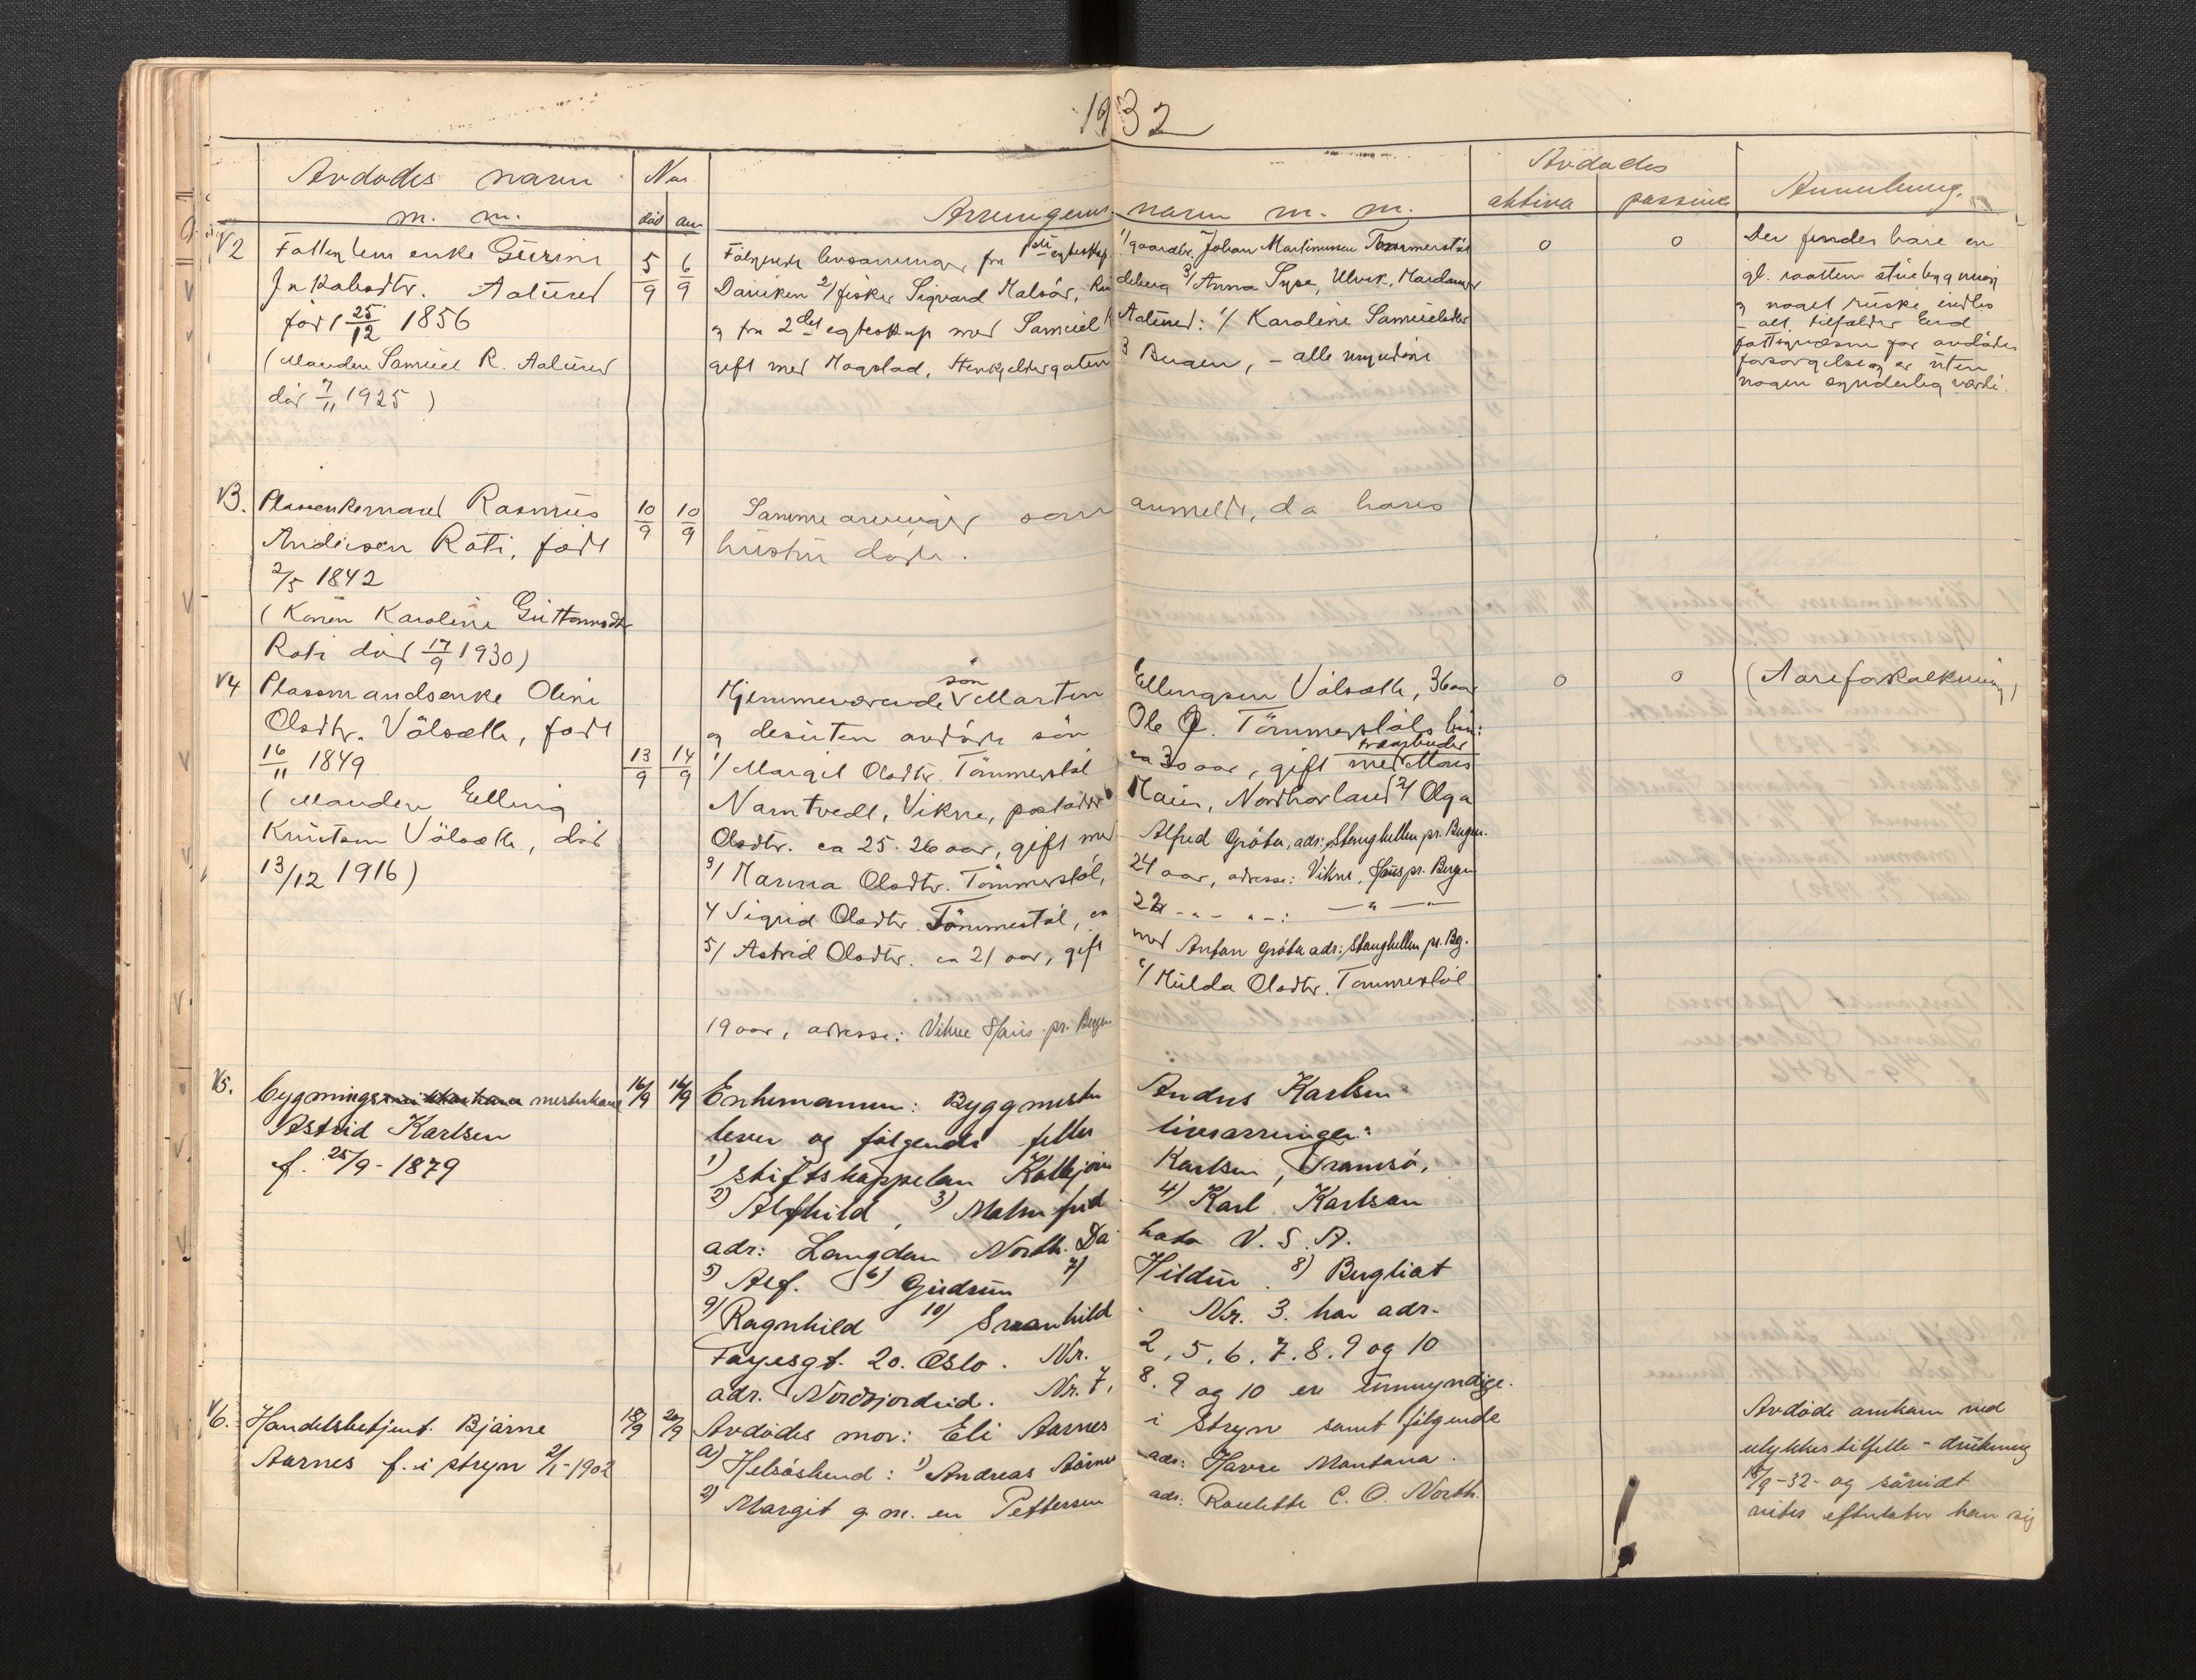 1932
Avdödes navn
m. m.
Naar
död anm
Arvingenes navn m. m.
Avdödes
aktiva passiva
Anmerkning.
V2 Fattiglem enke Gurine
Jakobsdtr. Aalured
född 25/12 1856
(Manden Samuel R. Aalured
död 7/11 1925)
5/9 6/9
Følgende livsarvinger fra egteskap 1/ gaardbr. Johan Martinussen Tømmerstøl
2/ fisker Sigvard Malsór, 3/ Anna Syse, Ulvik, Hardanger
og fra 2det egteskap med Samuel Aalured: 1/ Karoline Samuelsdtr
gift med Hogstad, 3 Bergen, – alle myndige
0 0
Der findes bare en
gl. raatten stuebygning
og noget
– alt tilfalder Eid
fattigvæsen for avdødes
forsørgelse og er uten
nogen synderlig værdi.
V3. Rasmus
Andersen Roti, född
2/5 1842
(Konen Karoline Guttormsdtr
Roti död 17/9 1930)
10/9 10/9
Samme arvinger som anmeldt, da hans
hustru døde.
V4 Plassmandsenke Oline
Olsdtr. Völsætk, född
16/11 1849
(Manden Elling
Knutsen Völsætk, död
13/12 1916)
13/9 14/9
Hjemmeværende sön Marten Ellingsen Völsætk, 36 aar
og desuten avdöde sön Ole Tömmerstöls
1/ Margit Olsdtr. Tömmerstöl ca 30 aar, gift med Mons
Namtvedt, Vikne, Nordhorland 2/ Olga
Olsdtr. ca 25-26 aar, gift med Alfred Gröta, adr: Stanghellen pr. Bergen.
3/ Marna Olsdtr. Tömmerstöl, 24 aar, adresse: Vikne, Haus pr. Bergen
4 Sigrid Olsdtr. Tömmestöl, ca 22 – " – " –: – " – " –
5/ Astrid Olsdtr. ca 21 aar, gift med Anfan Gröta adr: Stanghellen pr. Bg.
6/ Hulda Olsdtr. Tømmerstöl
19 aar, adresse: Vikne Haus pr. Bergen
0 0
(Aareforkalkning)
V5. bygningsmesterkone
Astrid Karlsen
f. 25/9 - 1879
16/9 16/9
Enkemannen: Byggmester Andres Karlsen
lever og følgende felles livsarvinger:
1) stiftskappelan Kolbjörn Karlsen, Tromsö,
2) Alfhild, 3) Malmfrid 4) Karl Karlsen
adr: Langdon North. Dakota U. S. A.
5) Alf. 6) Gudrun 7) Hildur 8) Bergliot
9) Ragnhild 10) Svanhild. Nr. 3. har adr.
Fayesgt. 20. Oslo. Nr. 2, 5. 6. 7. 8. 9 og 10
adr. Nordfjordeid. Nr. 7, 8. 9 og 10 er umyndige.
V6. Handelsbetjent Bjarne
Aarnes f. i Stryn 2/1-1902
18/9 20/9
Avdødes mor: Eli Aarnes i Stryn samt følgende
a) Helsöskend: 1) Andreas Aarnes adr: Havre Montana.
2) Margit g. m. en Pettersen adr: Roulette C. O. North.
Avdöde omkom ved
ulykkestilfelle - drukning
18/9-32- og såvidt
vites efterlater han sig